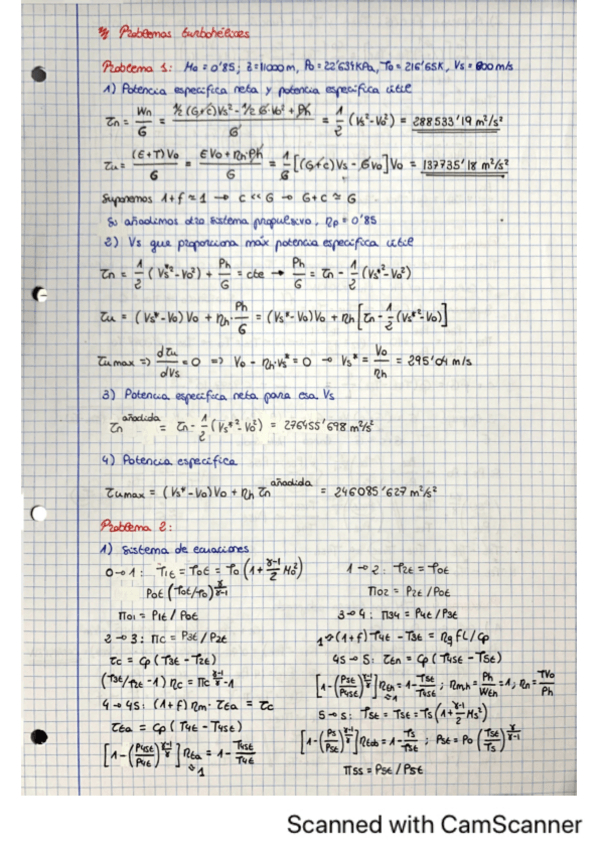 Problemas turbohélices
Problema 1: M0 = 0'85; z = 11000 m, P0 = 22'634 kPa, T0 = 216'65K, Vs = 800 m/s
1) Potencia específica neta y potencia específica útil
τn = Wn/G = (½(G+c)Vs² - ½G·V0² + Ph)/G = 1/2 (Vs² - V0²) = 288533'19 m²/s²
τu = (E+T)V0/G = (EV0 + ηh·Ph)/G = 1/G [(G+c)Vs - GV0]V0 = 137735'18 m²/s²
Suponemos 1+f ≈ 1 → c << G → G+c ≈ G
Si añadimos otro sistema propulsivo, ηp = 0'85
2) Vs que proporciona máx potencia específica útil
τn = 1/2 (Vs*² - V0²) + Ph/G = cte → Ph/G = τn - 1/2 (Vs*² - V0²)
τu = (Vs* - V0) V0 + ηh · Ph/G = (Vs* - V0)V0 + ηh [τn - 1/2 (Vs*² - V0)]
τumax => dτu/dVs = 0 => V0 - ηh·Vs* = 0 → Vs* = V0/ηh = 295'04 m/s
3) Potencia específica neta para esa Vs
τn añadida = τn - 1/2 (Vs*² - V0²) = 276455'698 m²/s²
4) Potencia específica
τumax = (Vs* - V0)V0 + ηh τn añadida = 246085'627 m²/s²
Problema 2:
1) Sistema de ecuaciones
0→1: T1t = T0t = T0 (1 + γ-1/2 M0²)
P0t (T0t/T0)^γ/γ-1
π01 = P1t / P0t
2→3: πc = P3t / P2t
τc = Cp (T3t - T2t)
(T3t/T2t - 1) ηc = πc^γ-1/γ - 1
4→45: (1+f) ηm · τta = τc
τta = Cp (T4t - T45t)
[1 - (P45t/P4t)^γ-1/γ] ηta = 1 - T45t/T4t
1
1→2: T2t = T0t
π02 = P2t / P0t
3→4: π34 = P4t / P3t
(1+f) T4t - T3t = ηq fL / Cp
45→5: τtn = Cp (T45t - T5t)
[1 - (P5t/P45t)^γ-1/γ] ηtn = 1 - T5t/T45t; ηmh = Ph/Wtn = 1; ηh = TV0/Ph
1
5→s: T5t = Tst = Ts (1 + γ-1/2 Ms²)
[1 - (Ps/P5t)^γ-1/γ] ηtob = 1 - Ts/T5t; Pst = P0 (Tst/Ts)^γ/γ-1
π5s = Pst / P5t
Scanned with CamScanner